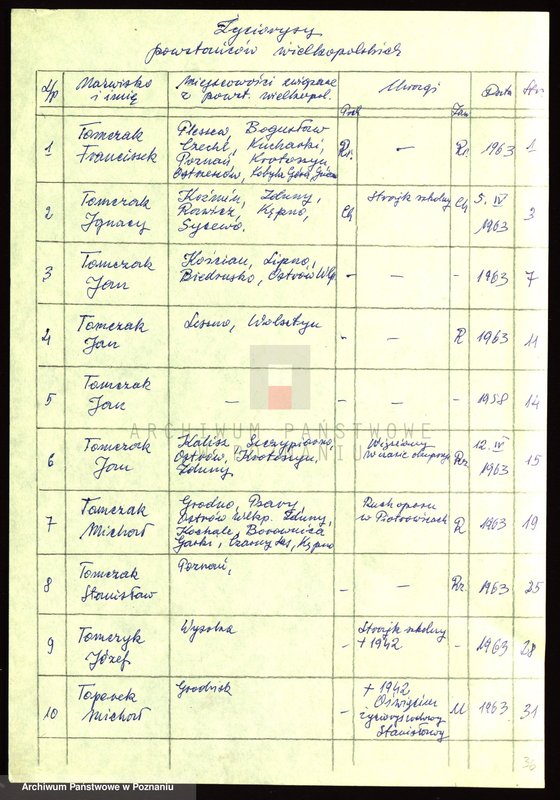 Życiorysy
powstańców wielkopolskich
L/p Nazwisko i imię Miejscowości związane z powst. wielkopol. Poch Uwagi Zaw Data Str
1 Tomczak Franciszek Pleszew, Bogusław Czechel, Kucharki, Poznań, Krotoszyn Ostrzeszów, Kobyla Góra, Rr. — Rr. 1963 1
2 Tomczak Ignacy Koźmin, Zduny, Rawicz, Kępno, Sycewo. Ch Strajk szkolny Ch 5. IV 1963 3
3 Tomczak Jan Kościan, Lipno, Biedrusko, Ostrów Wlp - — - 1963 7
4 Tomczak Jan Leszno, Wolsztyn - — R 1963 11
5 Tomczak Jan — - — - 1958 14
6 Tomczak Jan Kalisz, Szczypiorno, Ostrów, Krotoszyn, Zduny - Więziony w czasie okupacji Rz 12. IV 1963 15
7 Tomczak Michał Grodno, Ostrów Wlkp. Zduny, Borownica Czarny Las, Kępno - Ruch oporu w R 1963 19
8 Tomczak Stanisław Poznań, - — Rz. 1963 25
9 Tomczyk Józef Wysoka - Strajk szkolny + 1942 - 1963 28
10 Toporek Michał Grodzisk - + 1942 Oświęcim Stanisławy M 1963 31
36
ARCHIWUM PAŃSTWOWE
W POZNANIU
Archiwum Państwowe w Poznaniu